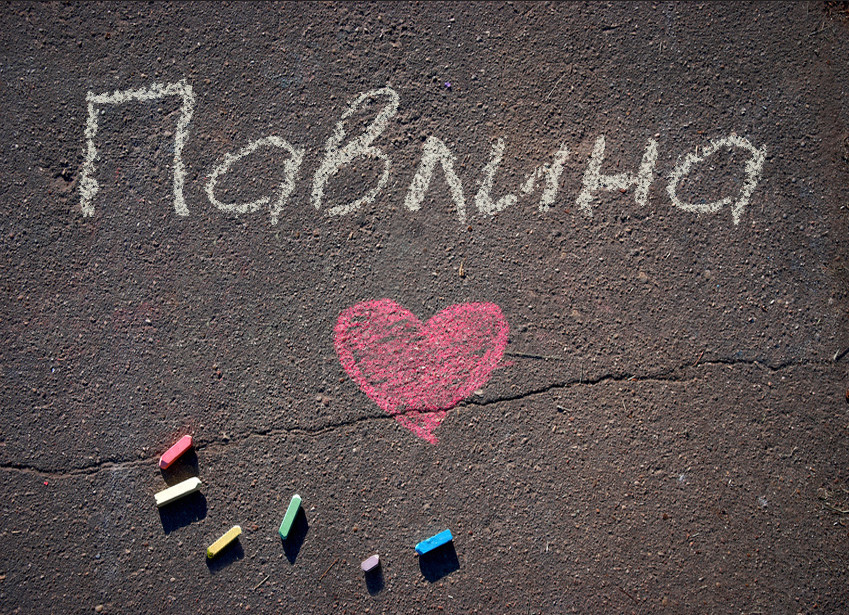 Павлина